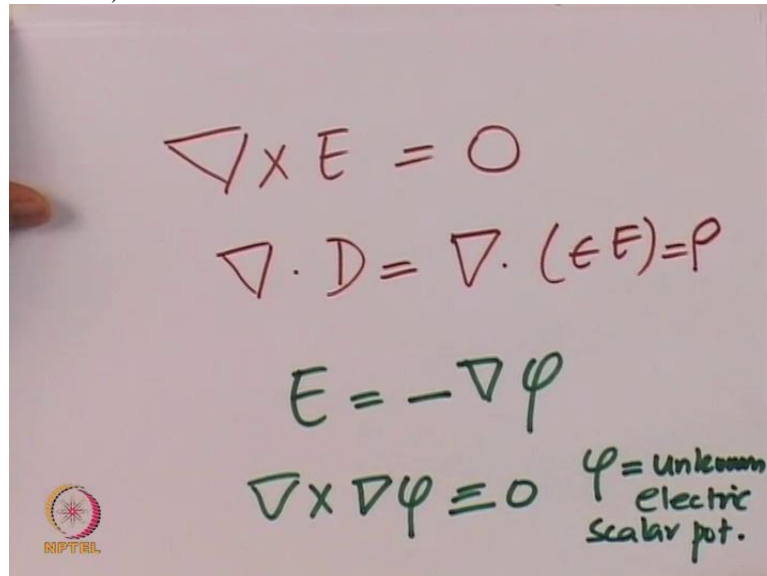 ∇ × E = 0
∇ · D = ∇ · (ϵ E) = ρ
E = − ∇ φ
∇ × ∇ φ ≡ 0
φ = unknown
electric
scalar pot.
NPTEL